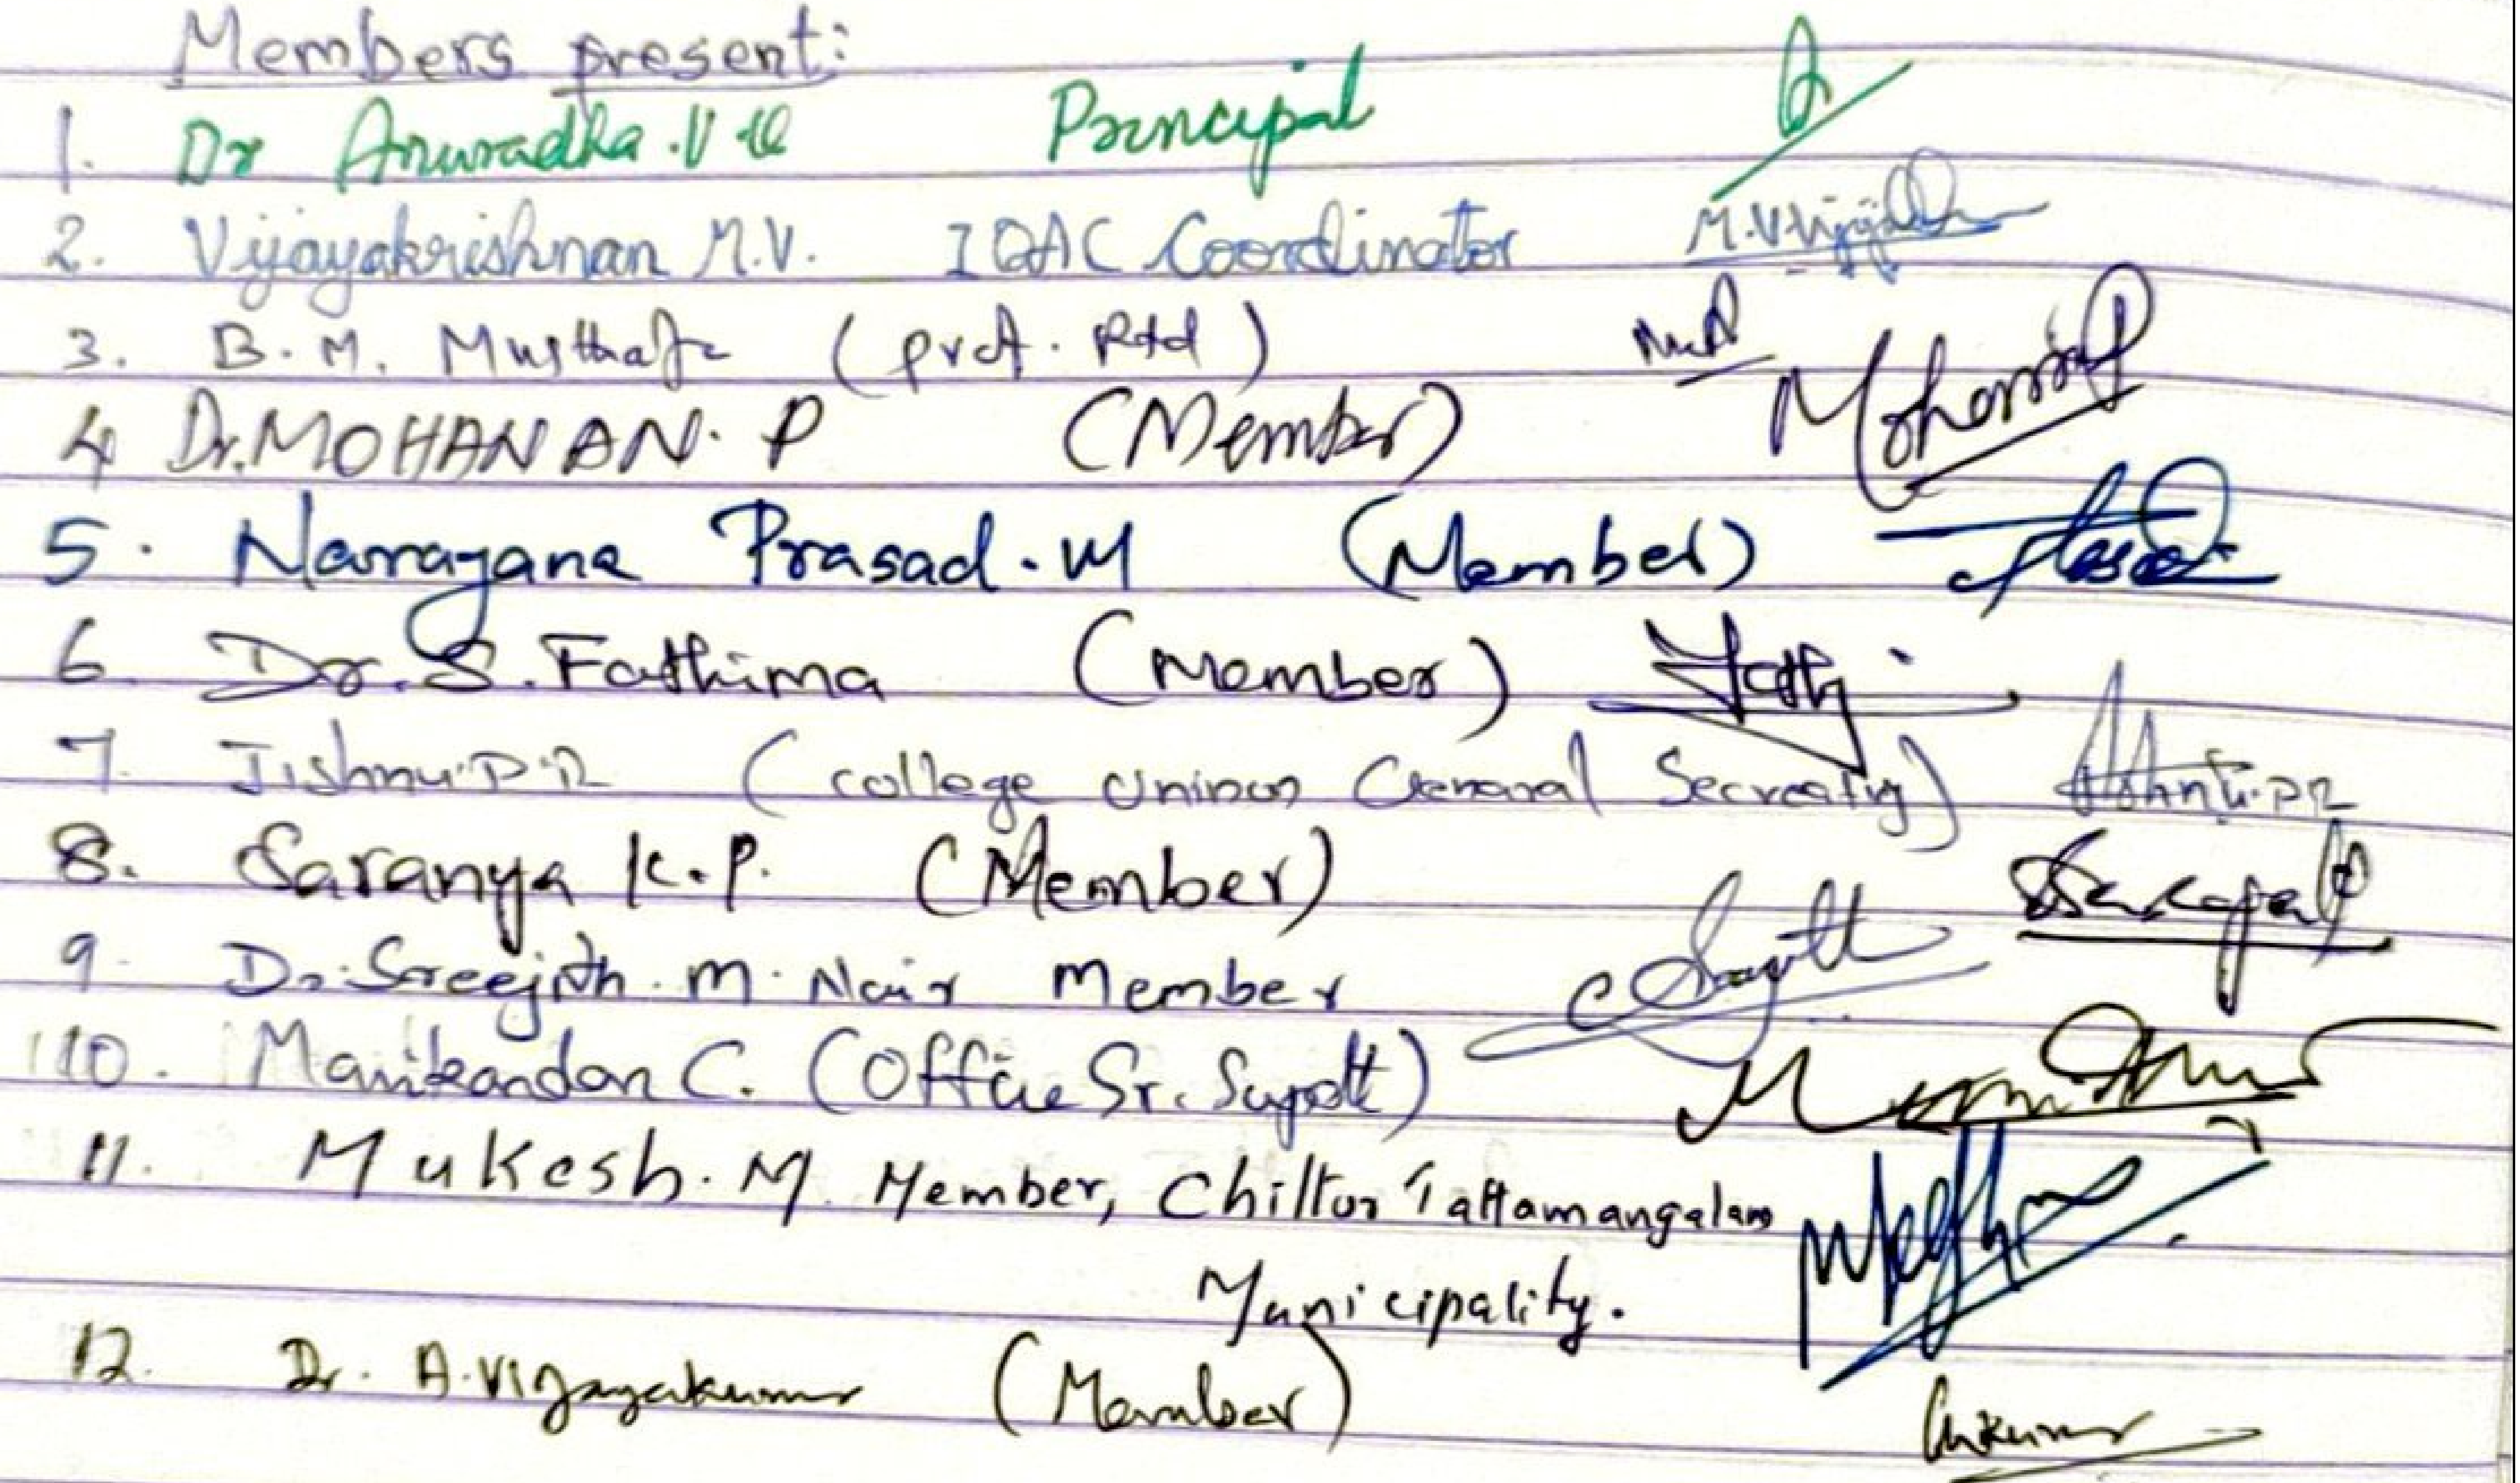 Members present:
1. Dr Anuradha.V K Principal
2. Vijayakrishnan M.V. IQAC Coordinator M.V.Vijayakr
3. B.M. Musthafa (prof. Rtd)
4 Dr.MOHANAN. P (Member) MohananP
5. Narayana Prasad.M (Member)
6 Dr.S.Fathima (Member)
7. Jishnu.P.R (college Uninon General Secreatry) Jishnu.PR
8. Saranya K.P. (Member)
9. Dr.Sreejith.M.Nair Member
10. Manikandan C. (Office Sr. Supdt)
11. Mukesh.M. Member, Chittur Tattamangalam
Municipality.
12. Dr. A.Vijayakumar (Member)